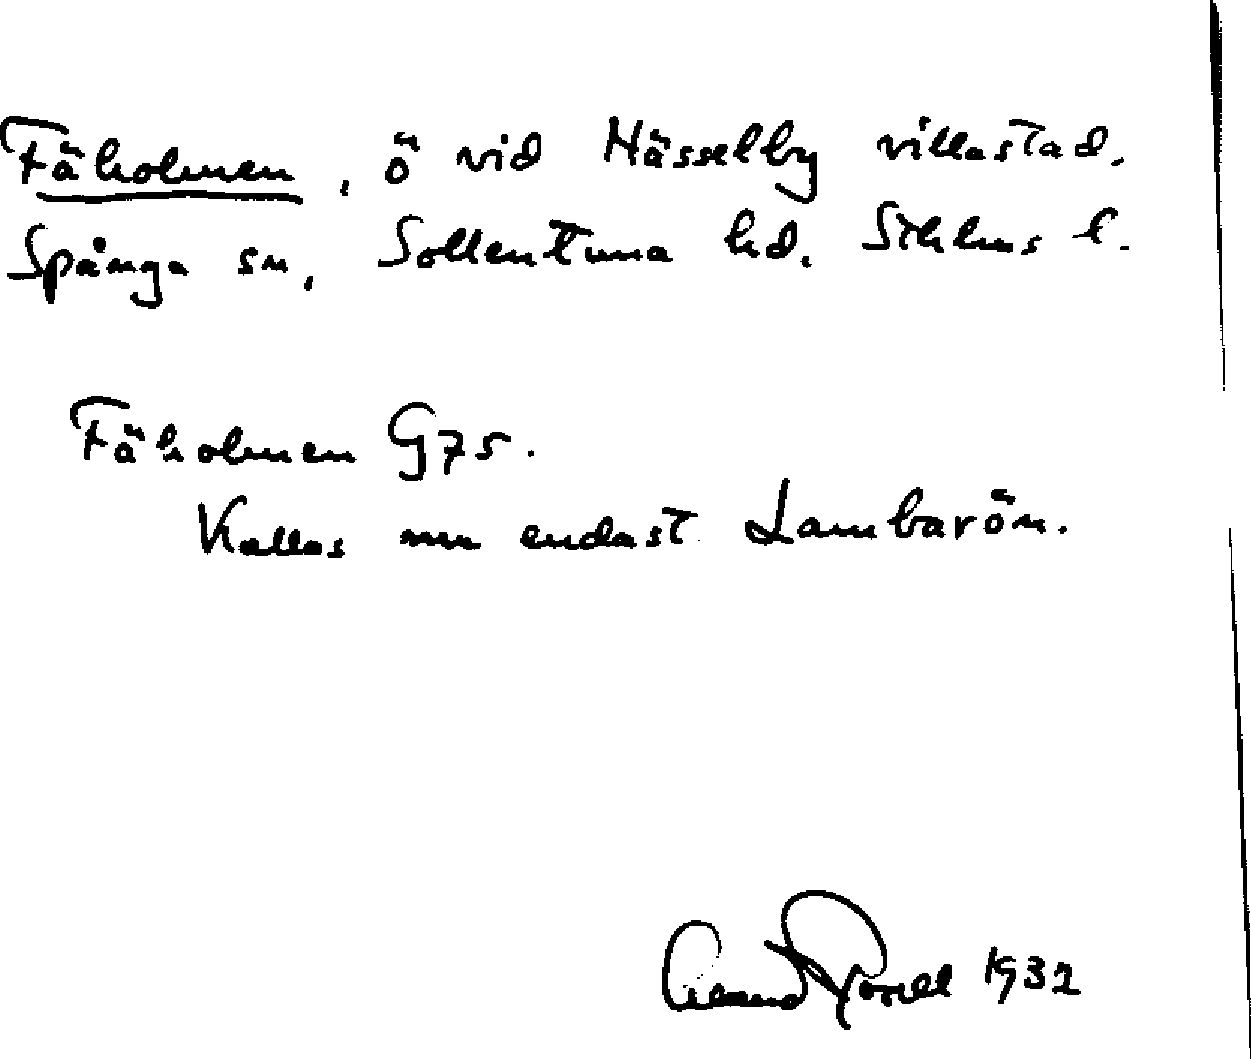 Fäholmen, ö vid Hässelby villastad.
Spånga sn, Sollentuna hd. Sthlms l.
Fäholmen G75.
Kallas nu endast Lambarön.
1932